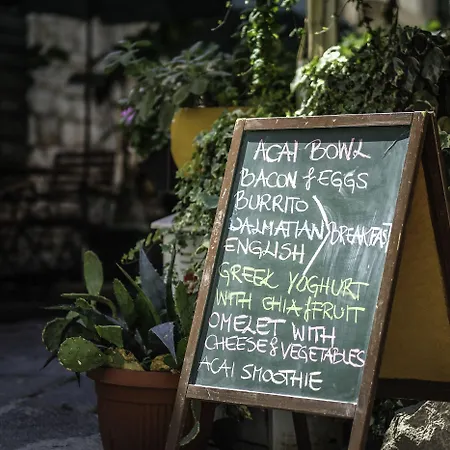 ACAI BOWL
BACON & EGGS
BURRITO
DALMATIAN BREAKFAST
ENGLISH
GREEK YOGHURT
WITH CHIA & FRUIT
OMELET WITH
CHEESE & VEGETABLES
ACAI SMOOTHIE